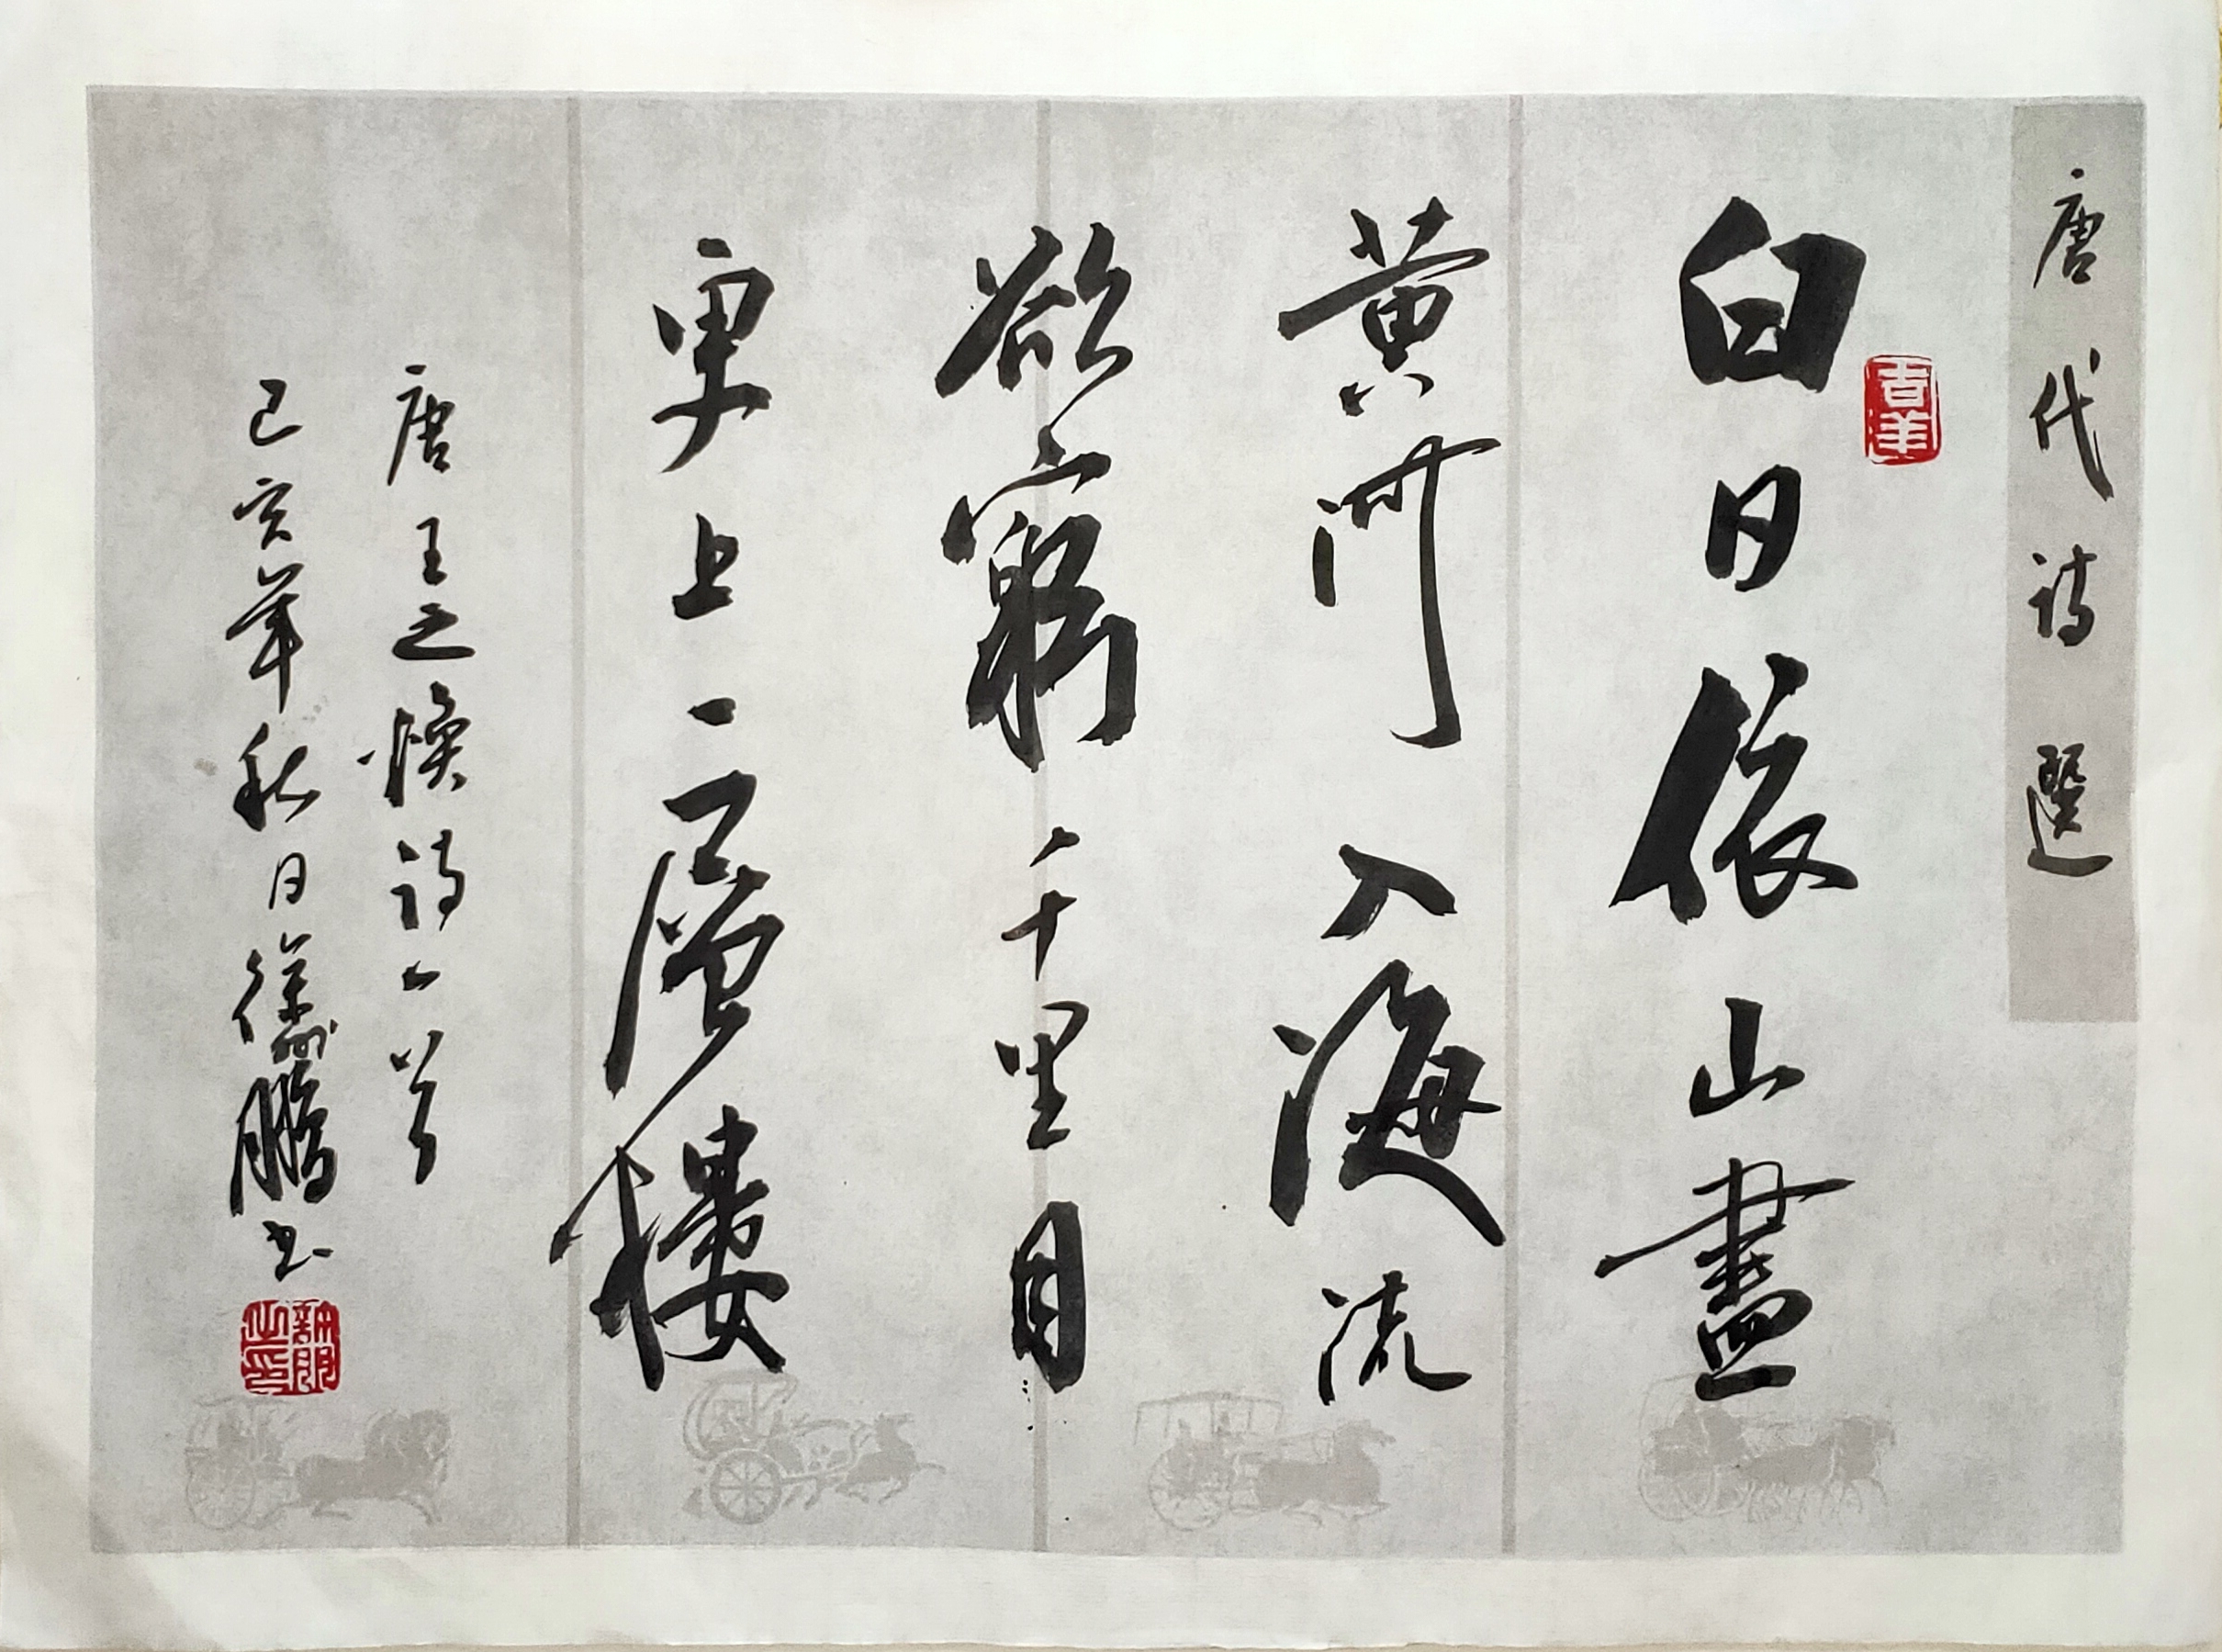 唐代詩選
吉羊
白日依山盡
黄河入海流
欲窮千里目
更上一層樓
唐王之煥詩一首
己亥年秋日徐州鵬书